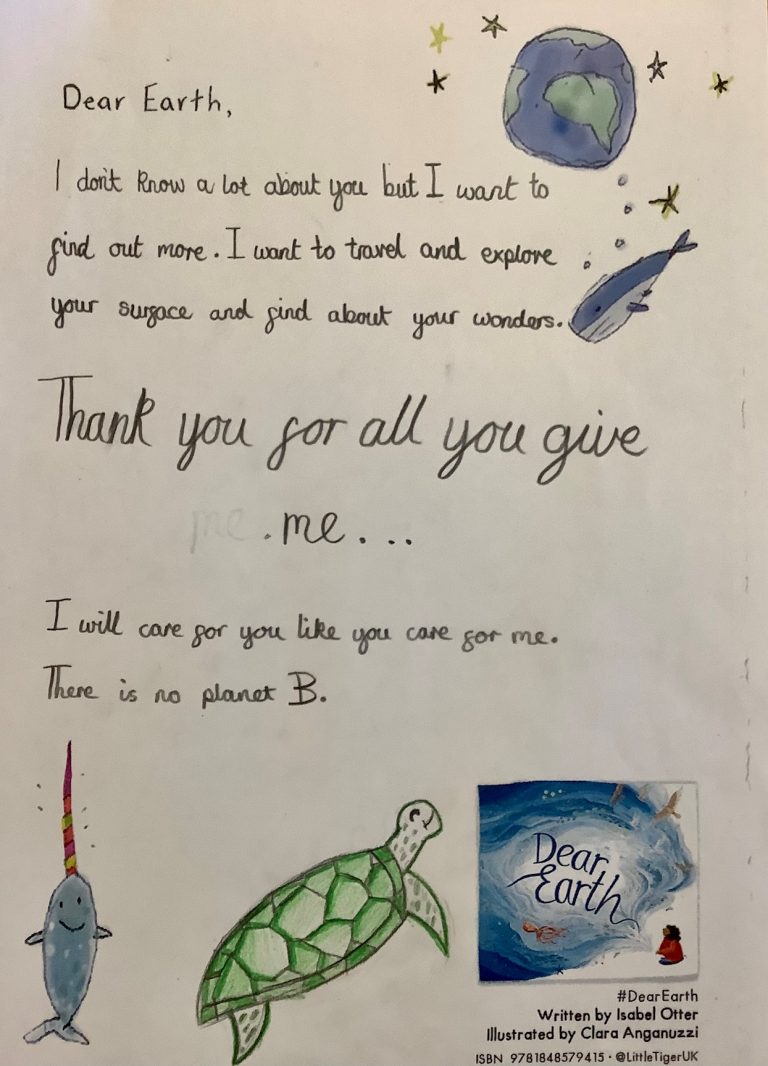 Dear Earth,
I don't know a lot about you but I want to
find out more. I want to travel and explore
your surface and find about your wonders.
Thank you for all you give
me .me...
I will care for you like you care for me.
There is no planet B.
Dear
Earth
#DearEarth
Written by Isabel Otter
Illustrated by Clara Anganuzzi
ISBN 9781848579415 · @LittleTigerUK